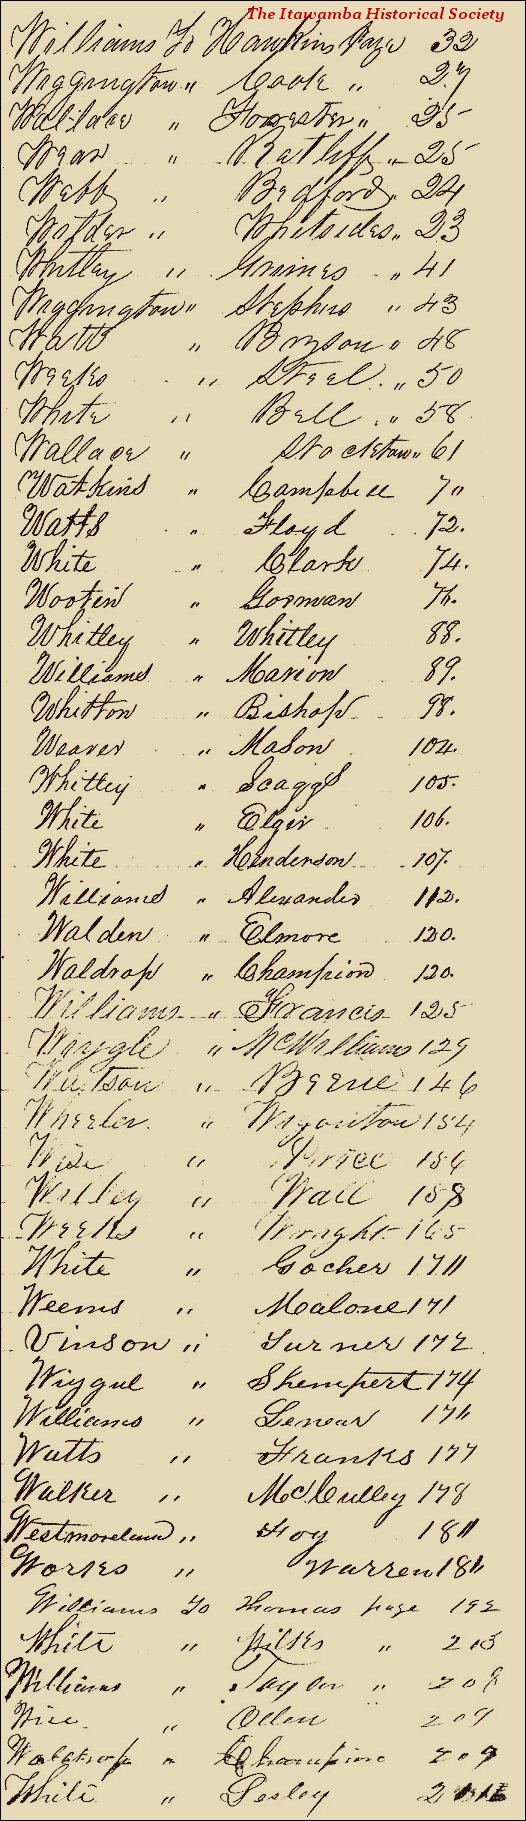 The Itawamba Historical Society
Williams To Hawkins Page 32
Wiggington " Cook " 27
Wallace " Forrester " 25
Wear " Ratliff " 25
Webb " Bedford " 24
Whitsides " 23
Whitley " Grimes " 41
Wiggington " Stephens " 43
Watts " Bryson " 48
Weeks " Steel " 50
White " Bell " 58
Wallace " Stockton " 61
Watkins " Campbell 70
Watts " Floyd 72.
White " Clark 74.
Wooten " Gorman 76.
Whitley " Whitley 88.
Williams " Marion 89.
Whitton " Bishop 98.
Weaver " Mason 104.
Whitley " Scaggs 105.
White " Elgir 106.
White " Henderson 107.
Williams " Alexander 112.
Walden " Elmore 120.
Waldrop " Champion 120.
Williams " Francis 125
Wiygle " McWilliams 129
Watson " Beene 146
Wheeler " 154
Wise " Price 156
Willey " Wall 158
Weeks " Wright 165
White " Gocher 170
Weems " Malone 171
Vinson " Turner 172
Wiygul " Shempert 174
Williams " Lenear 176
Watts " Franks 177
Walker " McCulley 178
Westmoreland " Foy 180
Works " Warren 186
Williams To Thomas page 192
White " Wilks " 203
Williams " Taylor " 208
Wise " Allen 209
Waldrop " Champion 209
White " Lesley